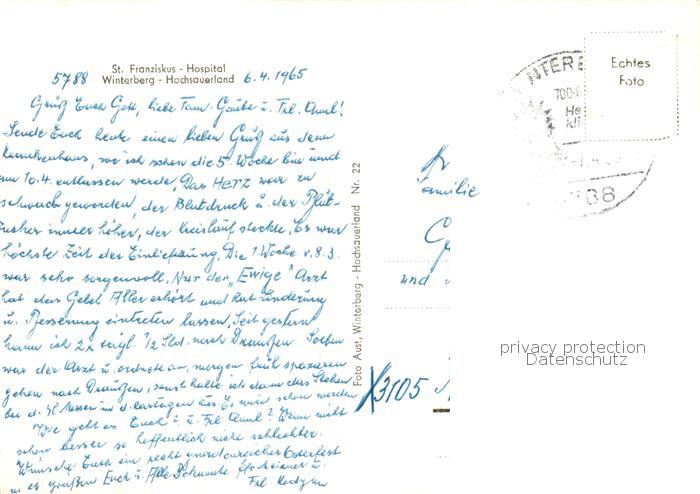 St. Franziskus - Hospital
5788 Winterberg - Hochsauerland 6.4.1965
Grüß Euch Gott, liebe Fam. u. Frl.
Sende Euch heute einen lieben Gruß aus dem
Krankenhaus, wo ich schon die 5. Woche bin und
am 10.4. entlassen werde. Das Herz war zu
schwach geworden, der Blutdruck u. der
immer höher, der Kreislauf stockte. Es war
höchste Zeit der Einlieferung. Die 1. Woche v. 8.3.
war sehr sorgenvoll. Nur der "Ewige" Arzt
hat das Gebet Aller erhört und hat Linderung
u. Besserung eintreten lassen. Seit gestern
kann ich 2x tägl. 1/2 Std. nach Draußen. Soeben
war der Arzt u. ordnete an, morgen früh spazieren
gehen nach Draußen, sonst halte ich dann das Stehen
bei d. hl. Messen in d. Kartagen aus. Es wird schon werden
Wie geht es Euch? u. Frl. ? Wenn nicht
schon besser so hoffentlich nicht schlechter.
Wünsche Euch ein recht Osterfest
u. es grüßen Euch u. Alle Bekannte
Frl.
Foto Aust, Winterberg - Hochsauerland Nr. 22
Echtes
Foto
INTERB
788
Familie
und
3105
privacy protection
Datenschutz